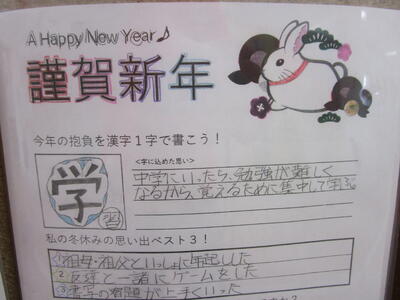 A Happy New Year♪
謹賀新年
今年の抱負を漢字1字で書こう!
<字に込めた思い>
中学にいったら、勉強が難しく
なるから、覚えるために集中して学ぶ
学
習
私の冬休みの思い出ベスト3!
①祖母・祖父といっしょに年越しした
②友達と一緒にゲームをした
③書写の宿題が上手くいった